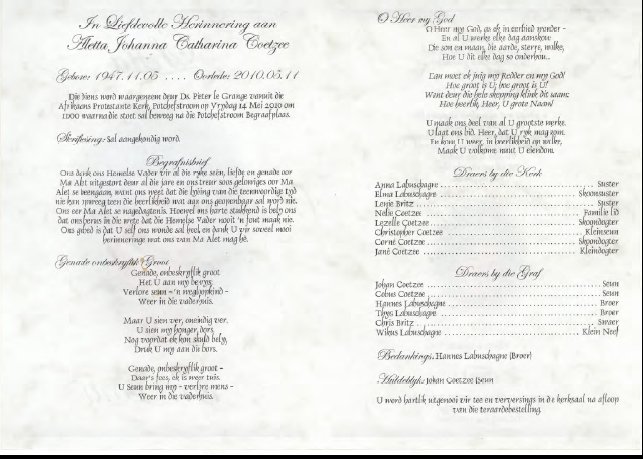 In Liefdevolle Herinnering aan
Aletta Johanna Catharina Coetzee
Gebore: 1947.11.05 .... Oorlede: 2010.05.11
Die diens word waargeneem deur Ds. Peter le Grange vanuit die
Afrikaans Protestante Kerk, Potchefstroom op Vrydag 14 Mei 2010 om
11:00 waarna die stoet sal beweeg na die Potchefstroom Begraafplaas.
Skriflesing: Sal aangekondig word.
Begrafnisbrief
Ons dank ons Hemelse Vader vir al die ryke seën, liefde en genade oor
Ma Alet uitgestort deur al die jare en ons treur soos gelowiges oor Ma
Alet se heengaan, want ons weet dat die lyding van die teenwoordige tyd
nie kan opweeg teen die heerlikheid wat aan ons geopenbaar sal word nie.
Ons eer Ma Alet se nagedagtenis. Hoewel ons harte stukkend is bely ons
dat ons berus in die wete dat die Hemelse Vader nooit 'n fout maak nie.
Ons gebed is dat U self ons wonde sal heel en dank U vir soveel mooi
herinneringe wat ons van Ma Alet mag hê.
Genade onbeskryflik Groot
Genade, onbeskryflik groot
Het U aan my bewys:
Verlore seun – 'n wegloopkind –
Weer in die vaderhuis.
Maar U sien ver, oneindig ver.
U sien my honger, dors.
Nog voordat ek kon skuld bely,
Druk U my aan die bors.
Genade, onbeskryflik groot –
Daar's fees, ek is weer tuis.
U Seun bring my – verlore mens –
Weer in die vaderhuis.
O Heer my God
O Heer my God, as ek in eerbied wonder –
En al U werke elke dag aanskou:
Die son en maan, die aarde, sterre, wolke,
Hoe U dit elke dag so onderhou...
Dan moet ek juig my Redder en my God!
Hoe groot is U, hoe groot is U!
Want deur die hele skepping klink dit saam:
Hoe heerlik, Heer, U grote Naam!
U maak ons deel van al U grootste werke.
U laat ons bid. Heer, dat U ryk mag kom.
En kom U weer, in heerlikheid op wolke,
Maak U volkome nuut U eiendom.
Draers by die Kerk
Anna Labuschagne ........ Suster
Elma Labuschagne ........ Skoonsuster
Lenie Britz ........ Suster
Nelie Coetzee ........ Familie lid
Lezelle Coetzee ........ Skoondogter
Christopher Coetzee ........ Kleinseun
Corné Coetzee ........ Skoondogter
Jané Coetzee ........ Kleindogter
Draers by die Graf
Johan Coetzee ........ Seun
Cobus Coetzee ........ Seun
Hannes Labuschagne ........ Broer
Thys Labuschagne ........ Broer
Chris Britz ........ Swaer
Wikus Labuschagne ........ Klein Neef
Bedankings: Hannes Labuschagne (Broer)
Huldeblyk: Johan Coetzee (Seun
U word hartlik uitgenooi vir tee en verversings in de kerksaal na afloop
van die teraardebestelling.